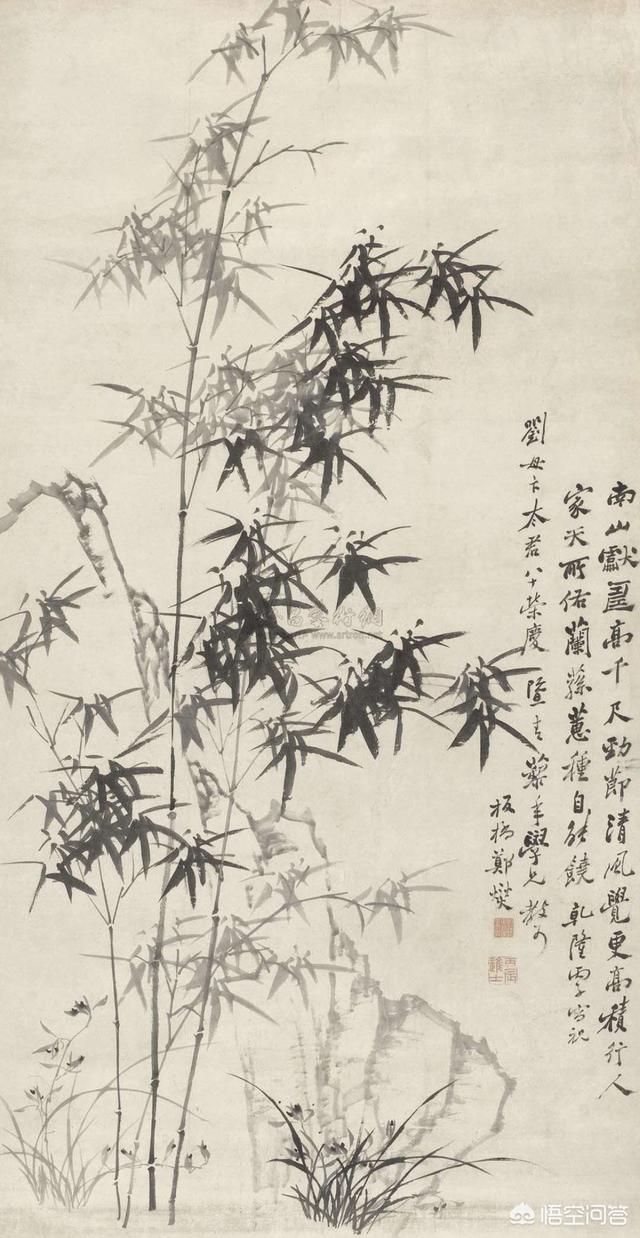 南山獻壽高千尺勁節清風覺更高積行人
家天所佑蘭蓀蕙種自能饒乾隆丙子寫祝
劉母卞太君八十榮慶暨青藜年學兄教可
板橋鄭燮
丙辰進士
www.artron.net
悟空问答